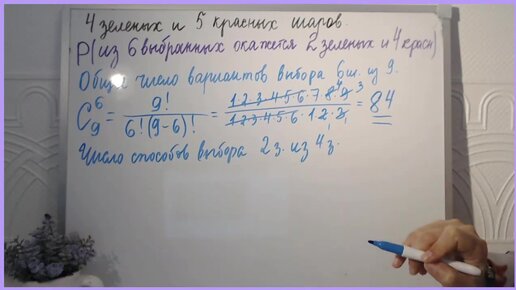 4 зеленых и 5 красных шаров.
P(из 6 выбранных окажется 2 зеленых и 4 красн)
Общее число вариантов выбора 6ш. из 9.
C₉⁶ = 9! / 6!(9-6)! = 1·2·3·4·5·6·7·8·9 / 1·2·3·4·5·6·1·2·3 = 84
Число способов выбора 2з. из 4з.